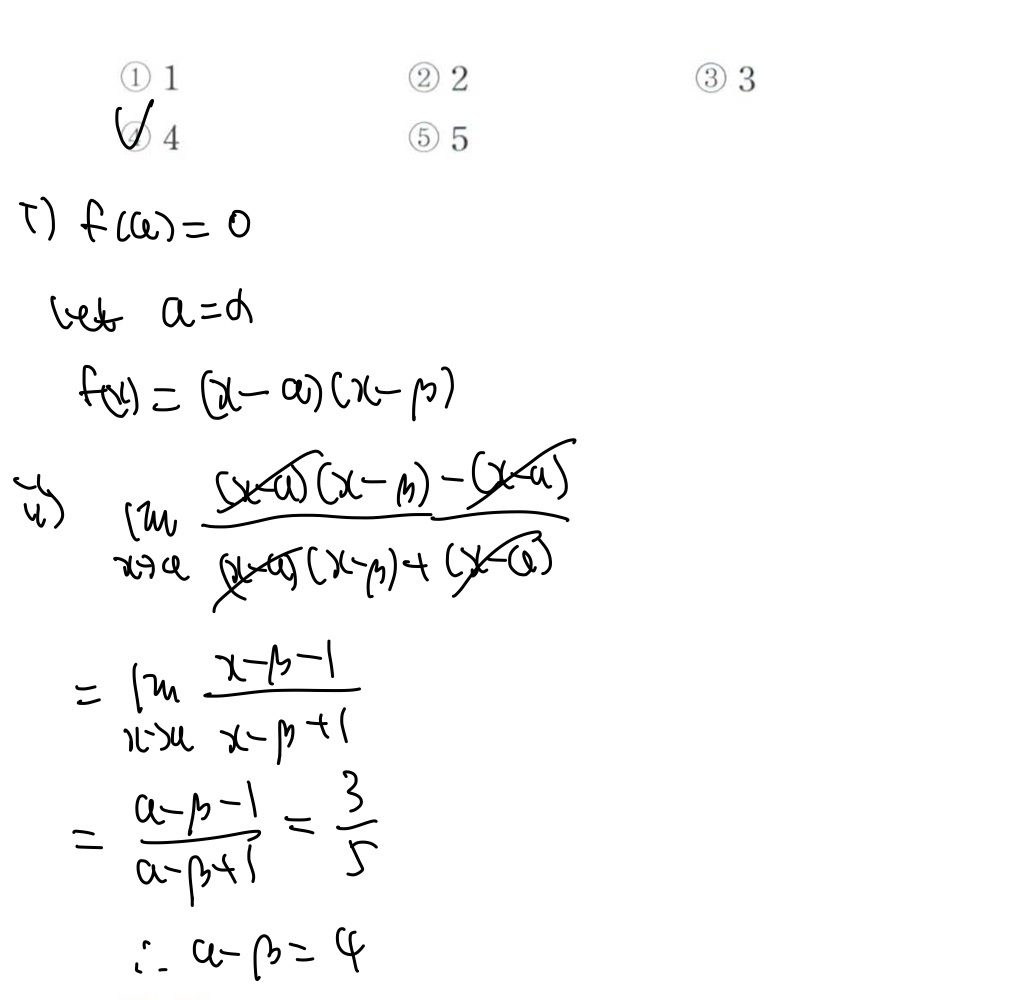 ① 1 ② 2 ③ 3
④ 4 ⑤ 5
i) f(a) = 0
let a = α
f(x) = (x-α)(x-β)
ii) lim x→a (x-a)(x-β)-(x-a) / (x-a)(x-β)+(x-a)
= lim x→a x-β-1 / x-β+1
= a-β-1 / a-β+1 = 3/5
∴ a-β = 4